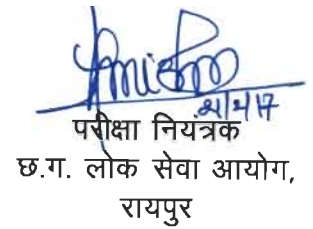 21/2/17
परीक्षा नियंत्रक
छ.ग. लोक सेवा आयोग,
रायपुर